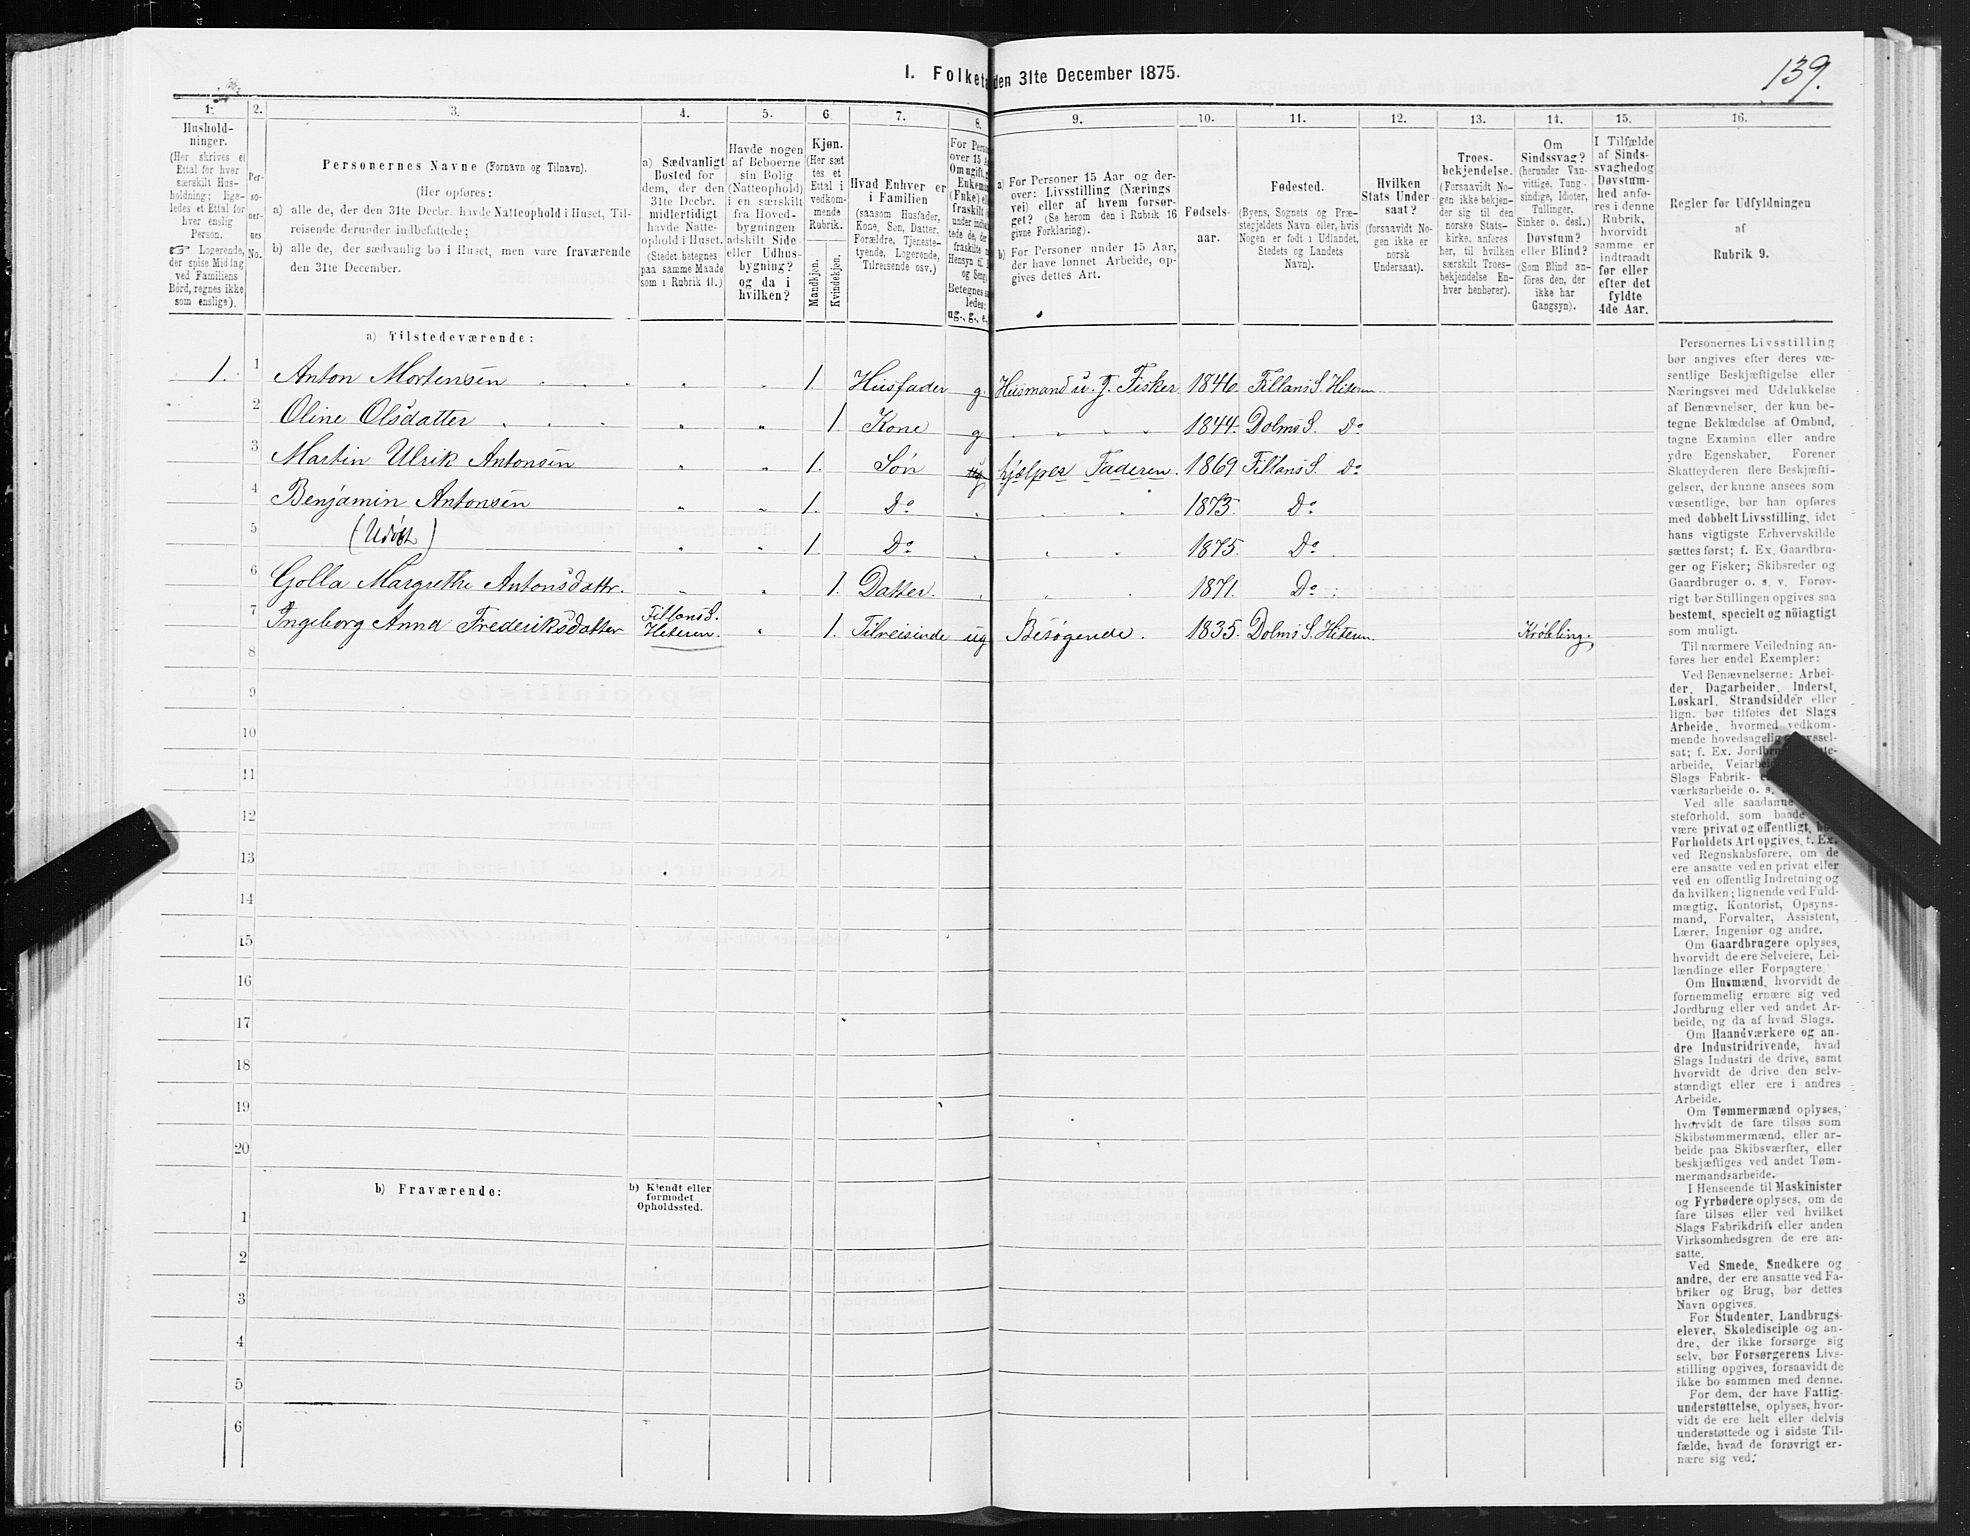 I. Folketæ
den 31te December 1875.
139.
1. 2. 3. 4. 5. 6. 7. 8. 9. 10. 11. 12. 13. 14. 15. 16.
Hushold-
ninger.
(Her skrives et
Ettal for hver
særskilt Hus-
holdning; lige-
ledes et Ettal for
hver enslig
Person.
☞ Logerende,
der spise Middag
ved Familiens
Bord, regnes ikke
som enslige).
Per-
so-
ner-
nes
No.
Personernes Navne (Fornavn og Tilnavn).
(Her opføres:
a) alle de, der den 31te Decbr. havde Natteophold i Huset, Til-
reisende derunder indbefattede;
b) alle de, der sædvanlig bo i Huset, men vare fraværende
den 31te December.
a) Sædvanligt
Bosted for
dem, der den
31te Decbr.
midlertidigt
havde Natte-
ophold i Huset.
(Stedet betegnes
paa samme Maade
som i Rubrik 11.)
Havde nogen
af Beboerne
sin Bolig
(Natteophold)
i en særskilt
fra Hoved-
bygningen
adskilt Side-
eller Udhus-
bygning?
og da i
hvilken?
Kjøn.
(Her sæt-
tes et
Ettal i
vedkom-
mende
Rubrik.
Mandkjøn.
Kvindekjøn.
Hvad Enhver er
i Familien
(saasom Husfader,
Kone, Søn, Datter,
Forældre, Tjeneste-
tyende, Logerende,
Tilreisende osv.)
For Perso
over 15 A
Om ugift, g
Enkema
(Fnke) el
fraskilt
under indbe
tede de, der
fraskilte m
Hensyn til
og Seng.
Betegnes sa
ledes:
ug., g., e.,
a) For Personer 15 Aar og der-
over: Livsstilling (Nærings
vei) eller af hvem forsør-
get? (Se herom den i Rubrik 16
givne Forklaring).
b) For Personer under 15 Aar,
der have lønnet Arbeide, op-
gives dettes Art.
Fødsels-
aar.
Fødested.
(Byens, Sognets og Præ-
stegjeldets Navn eller, hvis
Nogen er født i Udlandet,
Stedets og Landets
Navn).
Hvilken
Stats Under-
saat?
(forsaavidt No-
gen ikke er
norsk
Undersaat).
Troes-
bekjendelse.
(Forsaavidt No-
gen ikke bekjen-
der sig til den
norske Stats-
kirke, anføres
her, til hvilken
særskilt Troes-
bekjendelse En-
hver henhører).
Om
Sindssvag?
(herunder Van-
vittige, Tung-
sindige, Idioter,
Tullinger,
Sinker o. desl.)
Døvstum?
eller Blind?
(Som Blind an-
føres den, der
ikke har
Gangsyn).
I Tilfælde
af Sinds-
svaghed og
Døvstum-
hed anfø-
res i denne
Rubrik,
hvorvidt
samme er
indtraadt
før eller
efter det
fyldte
4de Aar.
Regler for Udfyldningen
af
Rubrik 9.
a) Tilstedeværende:
1. 1 Anton Mortensen 1. Husfader g. Husmand u. J. Fisker 1846. Fillans S. Hiteren
2 Oline Olsdatter 1. Kone g 1844. Dolms S. Do
3 Martin Ulrik Antonsen 1. Søn ug hjelper Faderen. 1869 Fillans S. Do
4 Benjamin Antonsen 1. Do 1873. Do
5 (Udøbt) 1. Do 1875. Do
6 Golla Margrethe Antonsdattr. 1. Datter. 1871. Do
7 Ingeborg Anna Frederiksdatter Fillans S. Hiteren. 1. Tilreisinde ug Besøgende. 1835. Dolms S. Hiteren. Krøbling.
8
9
10
11
12
13
14
15
16
17
18
19
20
b) Fraværende:
b) Kjendt eller
formodet
Opholdssted.
1
2
3
4
5
6
Personernes Livsstilling
bør angives efter deres væ-
sentlige Beskjæftigelse eller
Næringsvei med Udelukkelse
af Benævnelser, der kun be-
tegne Beklædelse af Ombud,
tagne Examina eller andre
ydre Egenskaber. Forener
Skatteyderen flere Beskjæfti-
gelser, der kunne ansees som
væsentlige, bør han opføres
med dobbelt Livsstilling, idet
hans vigtigste Erhvervskilde
sættes først; f. Ex. Gaardbru-
ger og Fisker; Skibsreder og
Gaardbruger o. s. v. Forøv-
rigt bør Stillingen opgives saa
bestemt, specielt og nöiagtigt
som muligt.
Til nærmere Veiledning an-
føres her endel Exempler:
Ved Benævnelserne: Arbei-
der, Dagarbeider, Inderst,
Løskarl, Strandsidder eller
lign. bør tilføies det Slags
Arbeide, hvormed vedkom-
mende hovedsagelig
sat; f. Ex.
arbeide,
Slags Fabrik-
værksarbeide o. s.
Ved alle saadanne
steforhold, som baade
være privat og offentligt,
Forholdets Art opgives, f. Ex.
ved Regnskabsførere, om de
ere ansatte ved en privat eller
ved en offentlig Indretning og
da hvilken; lignende ved Fuld-
mægtig, Kontorist, Opsyns-
mand, Forvalter, Assistent,
Lærer, Ingeniør og andre.
Om Gaardbrugere oplyses,
hvorvidt de ere Selveiere, Lei-
lændinge eller Forpagtere.
Om Husmænd, hvorvidt de
fornemmelig ernære sig ved
Jordbrug eller ved andet Ar-
beide, og da af hvad Slags.
Om Haandværkere og an-
dre Industridrivende, hvad
Slags Industri de drive, samt
hvorvidt de drive den selv-
stændigt eller ere i andres
Arbeide.
Om Tømmermænd oplyses,
hvorvidt de fare tilsøs som
Skibstømmermænd, eller ar-
beide paa Skibsværfter, eller
beskjæftiges ved andet Tøm-
mermandsarbeide.
I Henseende til Maskinister
og Fyrbødere oplyses, om de
fare tilsøs eller ved hvilket
Slags Fabrikdrift eller anden
Virksomhedsgren de ere an-
satte.
Ved Smede, Snedkere og
andre, der ere ansatte ved Fa-
briker og Brug, bør dettes
Navn opgives.
For Studenter, Landbrugs-
elever, Skoledisciple og an-
dre, der ikke forsørge sig
selv, bør Forsørgerens Livs-
stilling opgives, forsaavidt de
ikke bo sammen med denne.
For dem, der have Fattig-
understøttelse, oplyses, hvor-
vidt de ere helt eller delvis
understøttede og i sidste Til-
fælde, hvad de forøvrigt er-
nære sig ved.